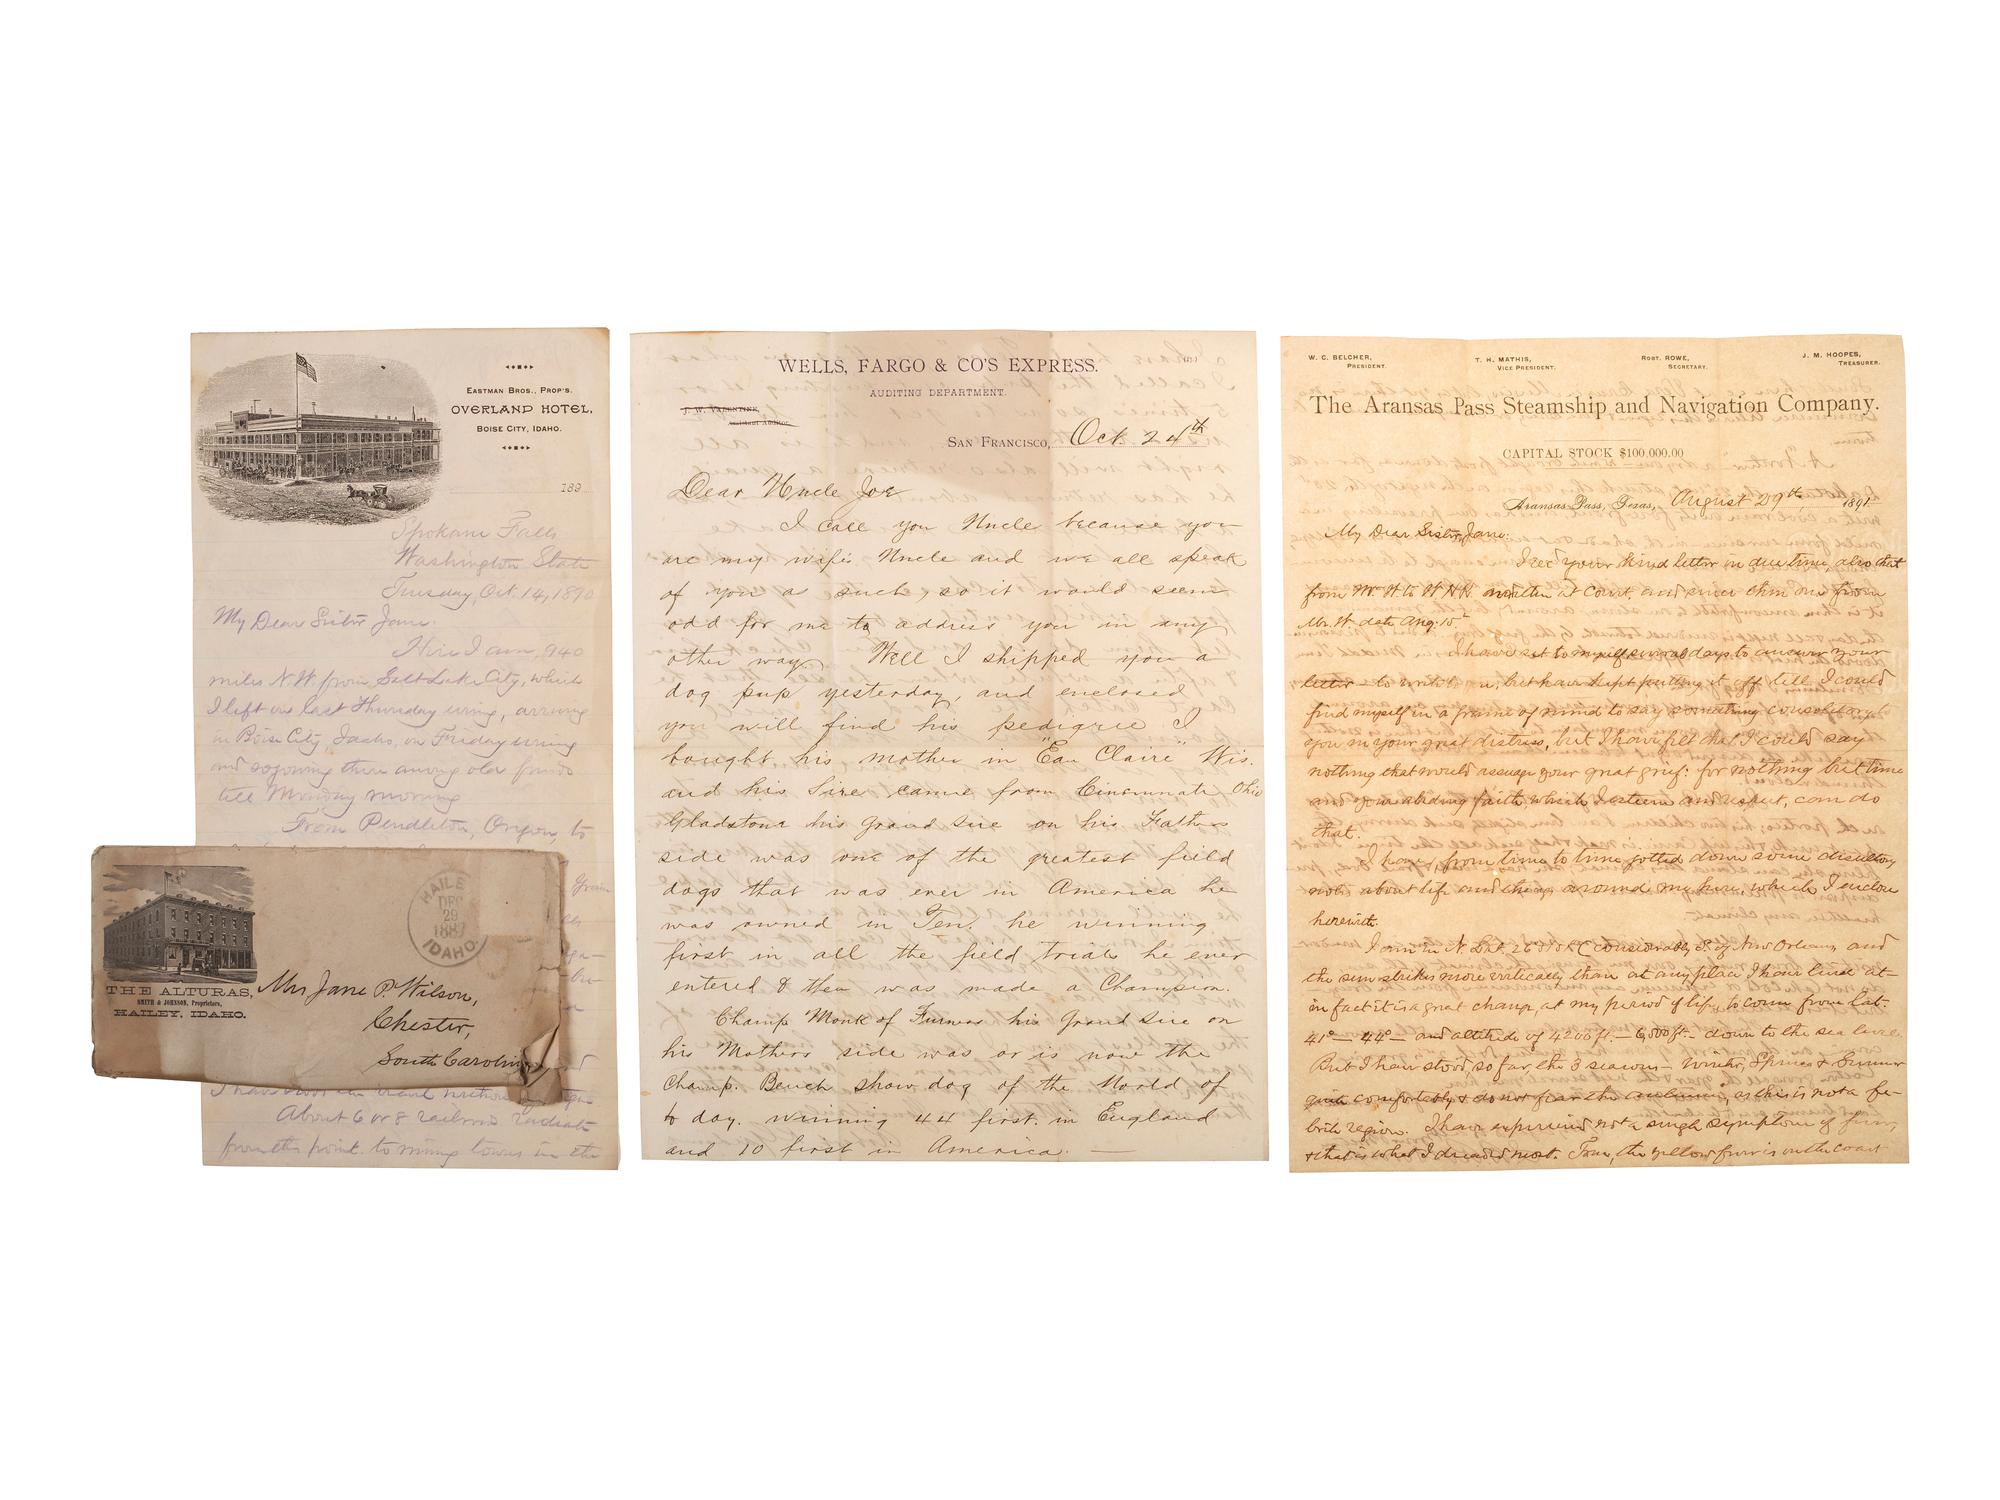 EASTMAN BROS., PROP'S.
OVERLAND HOTEL,
BOISE CITY, IDAHO.
189
Spokane Falls
Washington State
Tuesday, Oct. 14, 1890
My Dear Sister Jane:
Here I am, 940
miles N.W. from Salt Lake City, which
I left on last Thursday evening, arriving
in Boise City, Idaho, on Friday evening
and sojourning there among old friends
till Monday morning
From Pendleton, Oregon, to
THE ALTURAS,
SMITH & JOHNSON, Proprietors,
HAILEY, IDAHO.
HAILEY
DEC
29
1889
IDAHO
Mrs Jane P. Wilson,
Chester,
South Carolina
About 6 or 8 railroads radiate
from this point to mining towns in the
WELLS, FARGO & CO'S EXPRESS.
AUDITING DEPARTMENT.
J. W. VALENTINE,
Assistant Auditor.
SAN FRANCISCO, Oct. 24th
Dear Uncle Joe
I call you Uncle because you
are my wifes Uncle and we all speak
of you as such, so it would seem
odd for me to address you in any
other way. Well I shipped you a
dog pup yesterday, and enclosed
you will find his pedigree I
bought his mother in "Eau Claire" Wis.
and his Sire came from Cincinnati Ohio
Gladstone his Grand Sire on his Fathers
side was one of the greatest field
dogs that was ever in America he
was owned in Ten. he winning
first in all the field trials he ever
entered & then was made a Champion.
Champ "Monk of Furness his Grand Sire on
his Mothers side was or is now the
Champ. Bench show dog of the World of
to day. winning 44 first in England
and 10 first in America. —
W. C. BELCHER,
PRESIDENT.
T. H. MATHIS,
VICE PRESIDENT.
ROBT. ROWE,
SECRETARY.
J. M. HOOPES,
TREASURER.
The Aransas Pass Steamship and Navigation Company.
CAPITAL STOCK $100,000.00
Aransas Pass, Texas, August 29th, 1891
My Dear Sister Jane:
I rec'd your kind letter in due time, also that
from Mr. W. to W H K. written at Court, and since then one from
Mr. W. date Aug. 15
I have set to myself several days to answer your
letter — to write you, but have kept putting it off till I could
find myself in a frame of mind to say something consolatory to
you in your great distress, but I have felt that I could say
nothing that would assuage your great grief: for nothing but time
and your abiding faith, which I esteem and respect, can do
that.
I have, from time to time jotted down some desultory
notes about life and things around me here, which I enclose
herewith.
I am in N. Lat. considerably S. of New Orleans, and
the sun strikes more vertically than at any place I have lived at —
in fact it is a great change, at my period of life, to come from Lat.
41° — 44° — and altitude of 4200 ft. — 6,000 ft. — down to the sea level.
But I have stood, so far, the 3 seasons — Winter, Spring & Summer
quite comfortably & do not fear the autumn, as this is not a fe-
brile region. I have experienced not a single symptom of fever,
& that is what I dreaded most. True, the yellow fever is on the coast